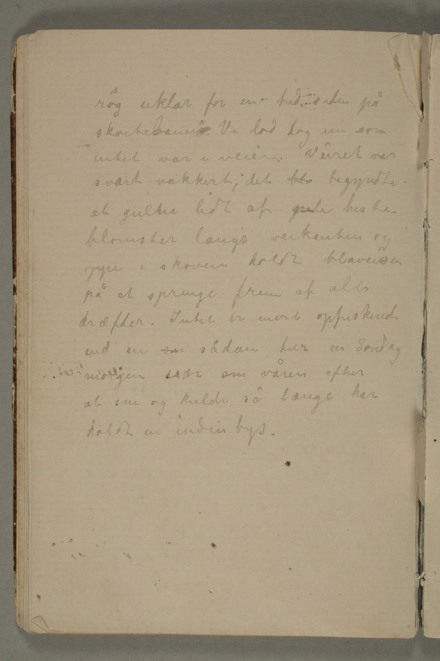 røg uklar for en
skøitebane. Vi lod dog nu som
intet var i veien. Veiret var
svært vakkert, det blo begyndte
at gultne lidt af gule heste-
blomster langs veikanten og
oppe i skoven holdt blaaveisen
på at springe frem af alle
kræfter. Intet er mere opfriskende
end en sådan her en Søndag
morgen om våren efter
at sne og kulde så længe har
holdt en inden bys.